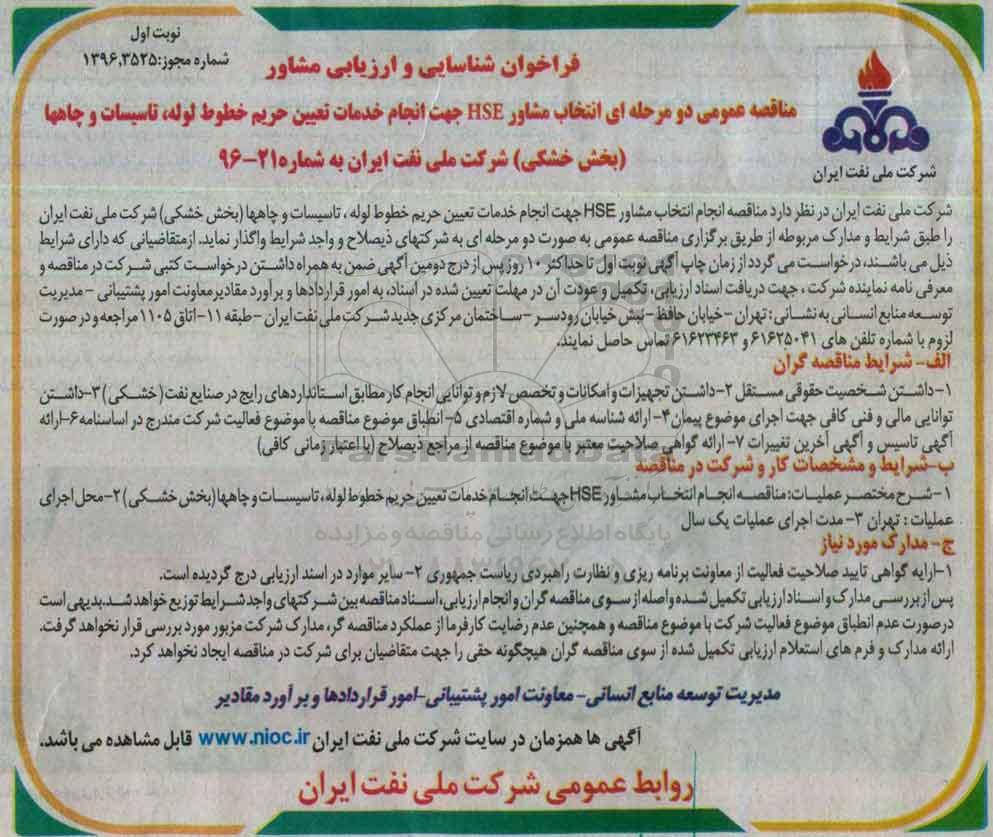 نوبت اول
شماره مجوز:۱۳۹۶,۳۵۲۵
شرکت ملی نفت ایران
فراخوان شناسایی و ارزیابی مشاور
مناقصه عمومی دو مرحله ای انتخاب مشاور HSE جهت انجام خدمات تعیین حریم خطوط لوله، تاسیسات و چاهها
(بخش خشکی) شرکت ملی نفت ایران به شماره ۲۱-۹۶
شرکت ملی نفت ایران در نظر دارد مناقصه انجام انتخاب مشاور HSE جهت انجام خدمات تعیین حریم خطوط لوله ، تاسیسات و چاهها (بخش خشکی) شرکت ملی نفت ایران
را طبق شرایط و مدارک مربوطه از طریق برگزاری مناقصه عمومی به صورت دو مرحله ای به شرکتهای ذیصلاح و واجد شرایط واگذار نماید. ازمتقاضیانی که دارای شرایط
ذیل می باشند، درخواست می گردد از زمان چاپ آگهی نوبت اول تا حداکثر ۱۰ روز پس از درج دومین آگهی ضمن به همراه داشتن درخواست کتبی شرکت در مناقصه و
معرفی نامه نماینده شرکت ، جهت دریافت اسناد ارزیابی، تکمیل و عودت آن در مهلت تعیین شده در اسناد، به امور قراردادها و برآورد مقادیرمعاونت امور پشتیبانی - مدیریت
توسعه منابع انسانی به نشانی : تهران - خیابان حافظ - نبش خیابان رودسر - ساختمان مرکزی جدید شرکت ملی نفت ایران - طبقه ۱۱- اتاق ۱۱۰۵ مراجعه و در صورت
لزوم با شماره تلفن های ۶۱۶۲۵۰۴۱ و ۶۱۶۲۳۴۶۳ تماس حاصل نمایند.
الف- شرایط مناقصه گران
۱- داشتن شخصیت حقوقی مستقل ۲- داشتن تجهیزات و امکانات و تخصص لازم و توانایی انجام کار مطابق استانداردهای رایج در صنایع نفت (خشکی) ۳-داشتن
توانایی مالی و فنی کافی جهت اجرای موضوع پیمان ۴- ارائه شناسه ملی و شماره اقتصادی ۵- انطباق موضوع مناقصه با موضوع فعالیت شرکت مندرج در اساسنامه ۶-ارائه
آگهی تاسیس و آگهی آخرین تغییرات ۷- ارائه گواهی صلاحیت معتبر با موضوع مناقصه از مراجع ذیصلاح (با اعتبار زمانی کافی)
ب-شرایط و مشخصات کار و شرکت در مناقصه
۱-شرح مختصر عملیات: مناقصه انجام انتخاب مشاور HSE جهت انجام خدمات تعیین حریم خطوط لوله، تاسیسات و چاهها (بخش خشکی) ۲-محل اجرای
عملیات : تهران ۳- مدت اجرای عملیات یک سال
ج- مدارک مورد نیاز
۱-ارایه گواهی تایید صلاحیت فعالیت از معاونت برنامه ریزی و نظارت راهبردی ریاست جمهوری ۲- سایر موارد در اسند ارزیابی درج گردیده است.
پس از بررسی مدارک و اسناد ارزیابی تکمیل شده و اصله از سوی مناقصه گران و انجام ارزیابی، اسناد مناقصه بین شرکتهای واجد شرایط توزیع خواهد شد. بدیهی است
درصورت عدم انطباق موضوع فعالیت شرکت با موضوع مناقصه و همچنین عدم رضایت کارفرما از عملکرد مناقصه گر، مدارک شرکت مزبور مورد بررسی قرار نخواهد گرفت.
ارائه مدارک و فرم های استعلام ارزیابی تکمیل شده از سوی مناقصه گران هیچگونه حقی را جهت متقاضیان برای شرکت در مناقصه ایجاد نخواهد کرد.
مدیریت توسعه منابع انسانی- معاونت امور پشتیبانی-امور قراردادها و برآورد مقادیر
آگهی ها همزمان در سایت شرکت ملی نفت ایران www.nioc.ir قابل مشاهده می باشد.
روابط عمومی شرکت ملی نفت ایران
ParsNamadData
پایگاه اطلاع رسانی مناقصه و مزایده